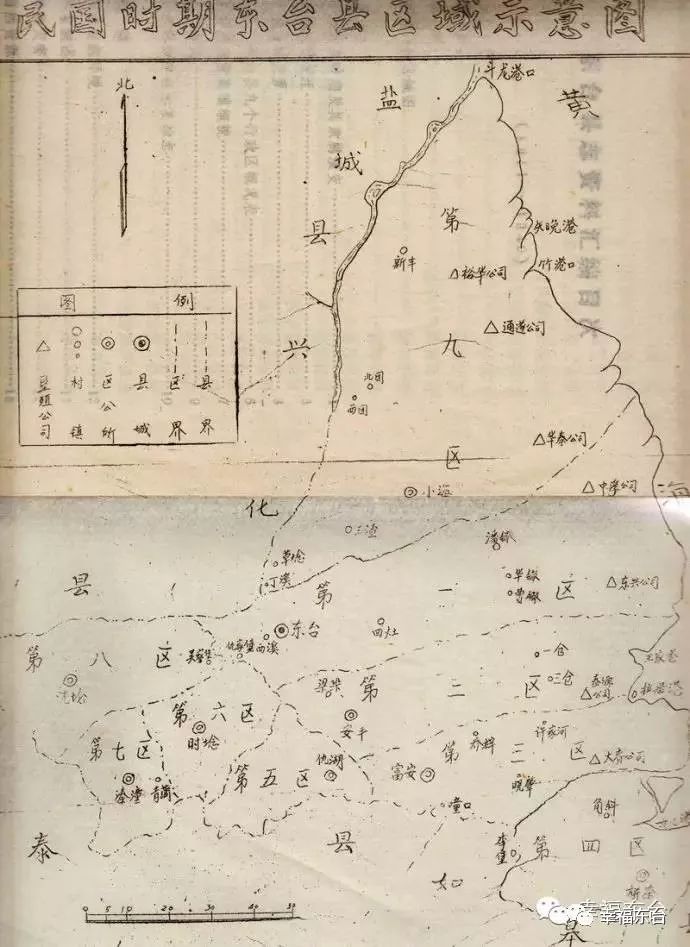 民国时期东台县区域示意图
北
斗龙港口
盐
黄
城
县
第
矢晚港
新丰
裕华公司
竹港口
兴
九
通遂公司
图 例
县界
区界
县城
区公所
村镇
垦殖公司
北团
西团
区
华泰公司
小海
中孚公司
海
化
三渣
潘𨱑
草埝
丁溪
县
第 一 区
华𨱑
曹𨱑
东兴公司
东台
西溪
四灶
第 八 区
一仓
三仓
梁垛
第 二 区
泰源公司
王家港
第 六 区
时埝
安丰
第 七 区
溱潼
青蒲
第 五 区
仇湖
富安
第 三 区
许家河
大赉公司
角斜
李堡
第 四 区
泰
县
如
0 5 10 20 30 40 50
幸福东台
幸福东台